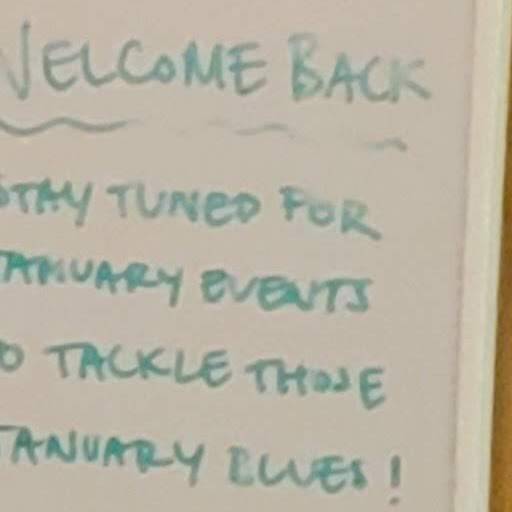 WELCOME BACK
STAY TUNED FOR
JANUARY EVENTS
TO TACKLE THOSE
JANUARY BLUES!